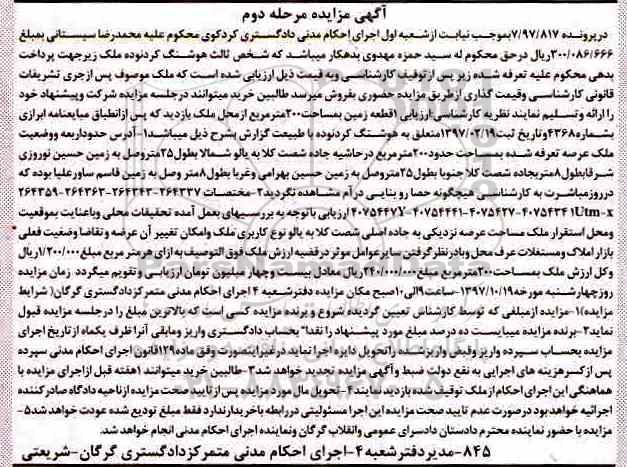 آگهی مزایده مرحله دوم
درپرونده ۷/۹۷/۸۱۷بموجب نیابت ازشعبه اول اجرای احکام مدنی دادگستری کردکوی محکوم علیه محمدرضا سیستانی بمبلغ
۳۰۰/۰۸۶/۶۶۶ریال درحق محکوم له سید حمزه مهدوی بدهکار میباشد که شخص ثالث هوشنگ کردنوده ملک زیرجهت پرداخت
بدهی محکوم علیه تعرفه شده زیر پس ازتوقیف کارشناسی وبه قیمت ذیل ارزیابی شده است که ملک موصوف پس ازجری تشریفات
قانونی کارشناسی وقیمت گذاری ازطریق مزایده حضوری بفروش میرسد طالبین خرید میتوانند درجلسه مزایده شرکت وپیشنهاد خود
را ارائه وتسلیم نمایند نظریه کارشناسی:ارزیابی ۱قطعه زمین بمساحت۲۰۰مترمربع ازمحل ملک بازدید که پس ازانطباق مبایعنامه ابرازی
بشماره۴۳۶۸وتاریخ ثبت۱۳۹۷/۰۲/۱۹متعلق به هوشنگ کردنوده با طبیعت گزارش بشرح ذیل میباشد۱-آدرس حدوداربعه ووضعیت
ملک عرصه تعرفه شده بمساحت حدود۲۰۰مترمربع درحاشیه جاده شصت کلا به یالو شمالا بطول۲۵متروصل به زمین حسین نوروزی
شرقابطول۸متربجاده شصت کلا جنوبا بطول۲۵متروصل به زمین حسین بهرامی وغربا بطول۸متر وصل به زمین قاسم ساورعلیا بوده که
درروزمباشرت به کارشناسی هیچگونه حصا رو بنایی درآم مشاهده نگردید۲-مختصات ۲۶۴۳۳۷-۲۶۴۳۴۳-۲۶۴۳۶۳-۲۶۴۳۵۹
1Utm-x ۴۰۷۵۴۳۴-۴۰۷۵۴۳۷-۴۰۷۵۴۴۱-۴۰۷۵۴۴۷Y ارزیابی باتوجه به بررسیهای بعمل آمده تحقیقات محلی وباعنایت بموقعیت
ومحل استقرار ملک مساحت عرصه نزدیکی به جاده اصلی شصت کلا به یالو نوع کاربری ملک وامکان تغییر آن عرضه و تقاضا وضعیت فعلی
بازار املاک ومستغلات عرف محل وبادرنظرگرفتن سایرعوامل موثر درقضیه ارزش ملک فوق التوصیف به ازای هرمتر مربع مبلغ۱/۲۰۰/۰۰۰ریال
وکل ارزش ملک بمساحت۲۰۰مترمربع مبلغ۲۴۰/۰۰۰/۰۰۰ریال معادل بیست وچهار میلیون تومان ارزیابی و تقویم میگردد زمان مزایده
روزچهارشنبه مورخه۱۳۹۷/۱۰/۱۹-ساعت۹الی۱۰صبح مکان مزایده دفترشعبه ۴ اجرای احکام مدنی متمرکزدادگستری گرگان( شرایط
مزایده)۱-مزایده ازمبلغی که توسط کارشناس تعیین گردیده شروع وبرنده مزایده کسی است که بالاترین مبلغ را درجلسه مزایده قبول
نماید۲-برنده مزایده میبایست ده درصد مبلغ مورد پیشنهاد را نقدا" بحساب دادگستری واریز ومابقی آنرا ظرف یکماه ازتاریخ اجرای
مزایده بحساب سپرده واریز وفیض واریزشده راتحویل دایره اجرا نماید درغیراینصورت وفق ماده۱۲۹قانون اجرای احکام مدنی سپرده
پس ازکسرهزینه های اجرایی به نفع دولت ضبط وآگهی مزایده تجدید خواهد شد۳-طالبین خرید میتوانند ۱هفته قبل ازاجرای مزایده با
هماهنگی این اجرای احکام ازملک توقیف شده بازدید نمایند ۴-تحویل مال مورد مزایده پس از تایید صحت مزایده ازناحیه دادگاه صادرکننده
اجرائیه خواهد بود درصورت عدم تایید صحت مزایده این اجرا مسئولیتی دررابطه باخریدارندارد فقط مبلغ تودیع شده عودت خواهد شد۵-
مزایده با حضور نماینده محترم دادستان دادسرای عمومی وانقلاب گرگان ونماینده اجرای احکام مدنی انجام خواهد شد.
۸۴۵-مدیردفترشعبه۴-اجرای احکام مدنی متمرکزدادگستری گرگان-شریعتی